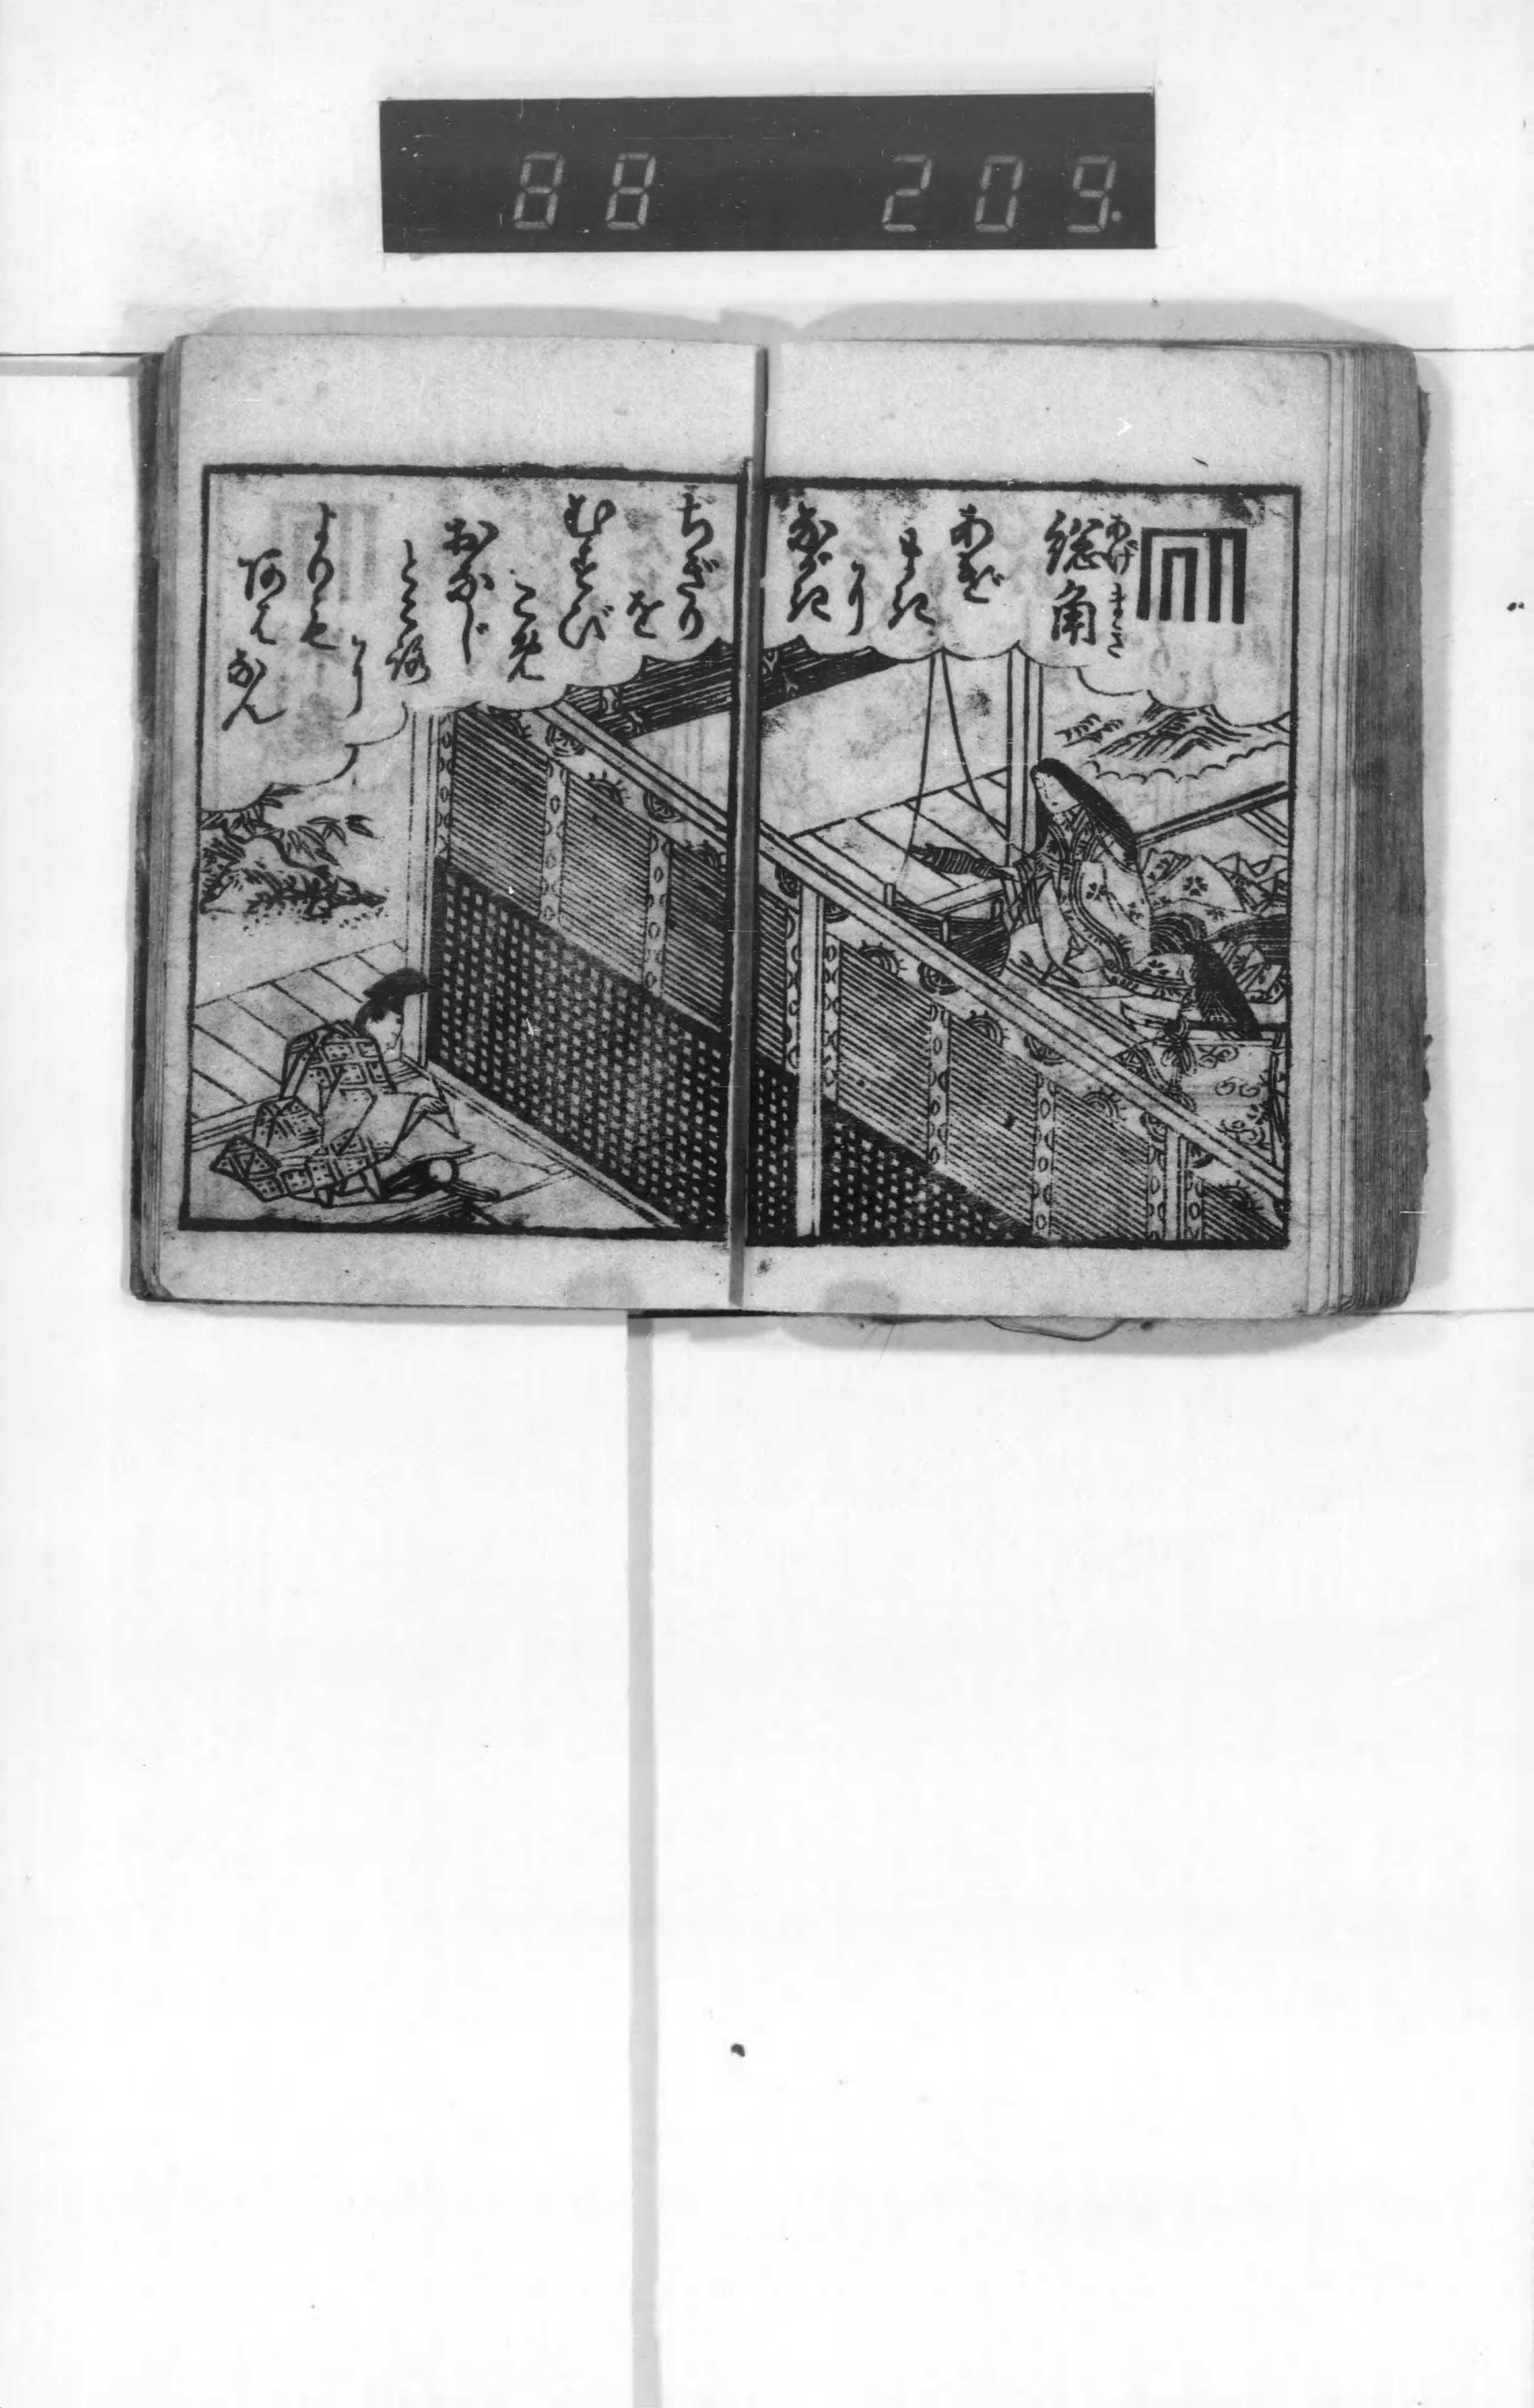 88 209.
総角
あげまき
あげ
まき
に
ながき
ちぎり
を
むすび
こめ
おなじ
ところ
に
よりも
阿は
なん